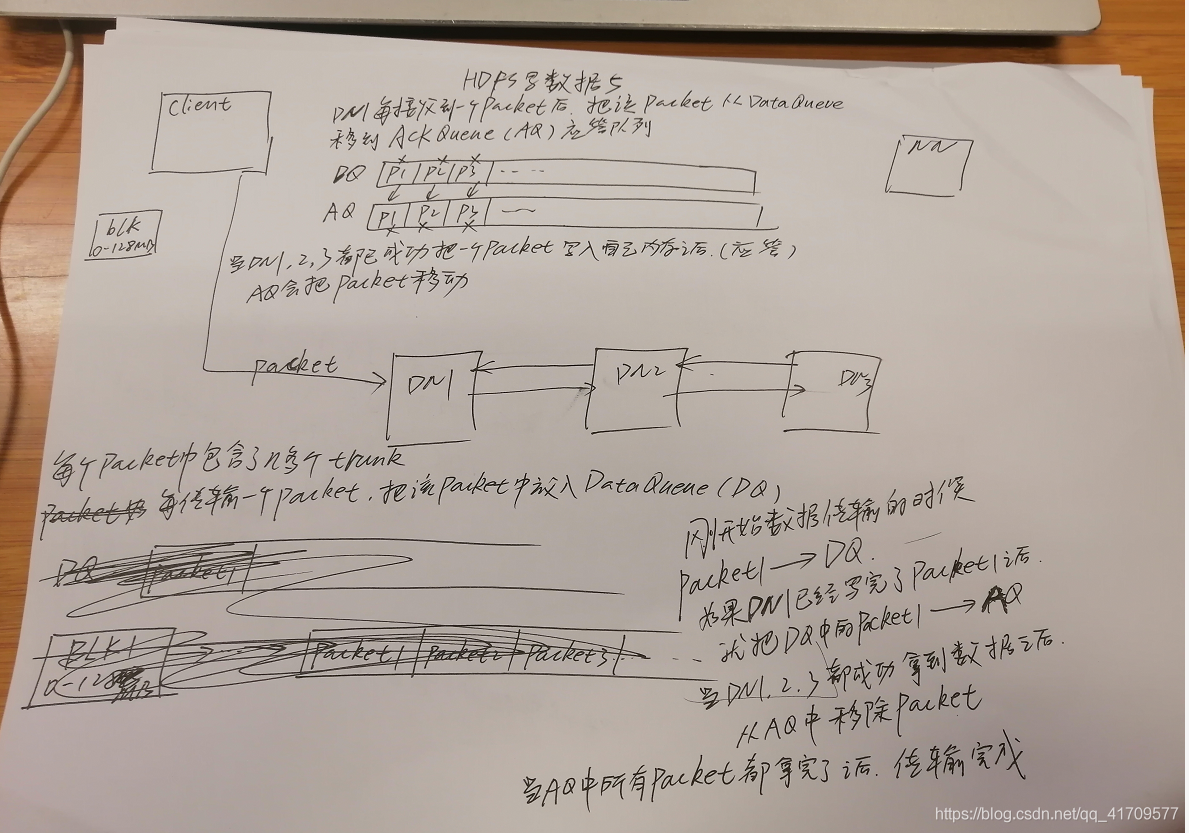 HDFS写数据5
client
DN1每接收到一个Packet后,把该Packet从DataQueue
移到AckQueue(AQ)应答队列
NN
DQ P1 P2 P3 ----
AQ P1 P2 P3
blk
0-128MB
当DN1,2,3都已成功把一个Packet写入自己内存之后.(应答)
AQ会把Packet移动
packet
DN1
DN2
DN3
每个Packet中包含了n多个trunk
每传输一个Packet,把该Packet中放入DataQueue(DQ)
刚开始数据传输的时候
Packet1→DQ.
如果DN1已经写完了Packet1之后.
就把DQ中的Packet1→AQ
当DN1,2,3都成功拿到数据之后.
从AQ中移除Packet
当AQ中所有Packet都拿完了之后.传输完成
DQ Packet1
BLK1
0-128MB
Packet1 Packet2 Packet3 ...
https://blog.csdn.net/qq_41709577